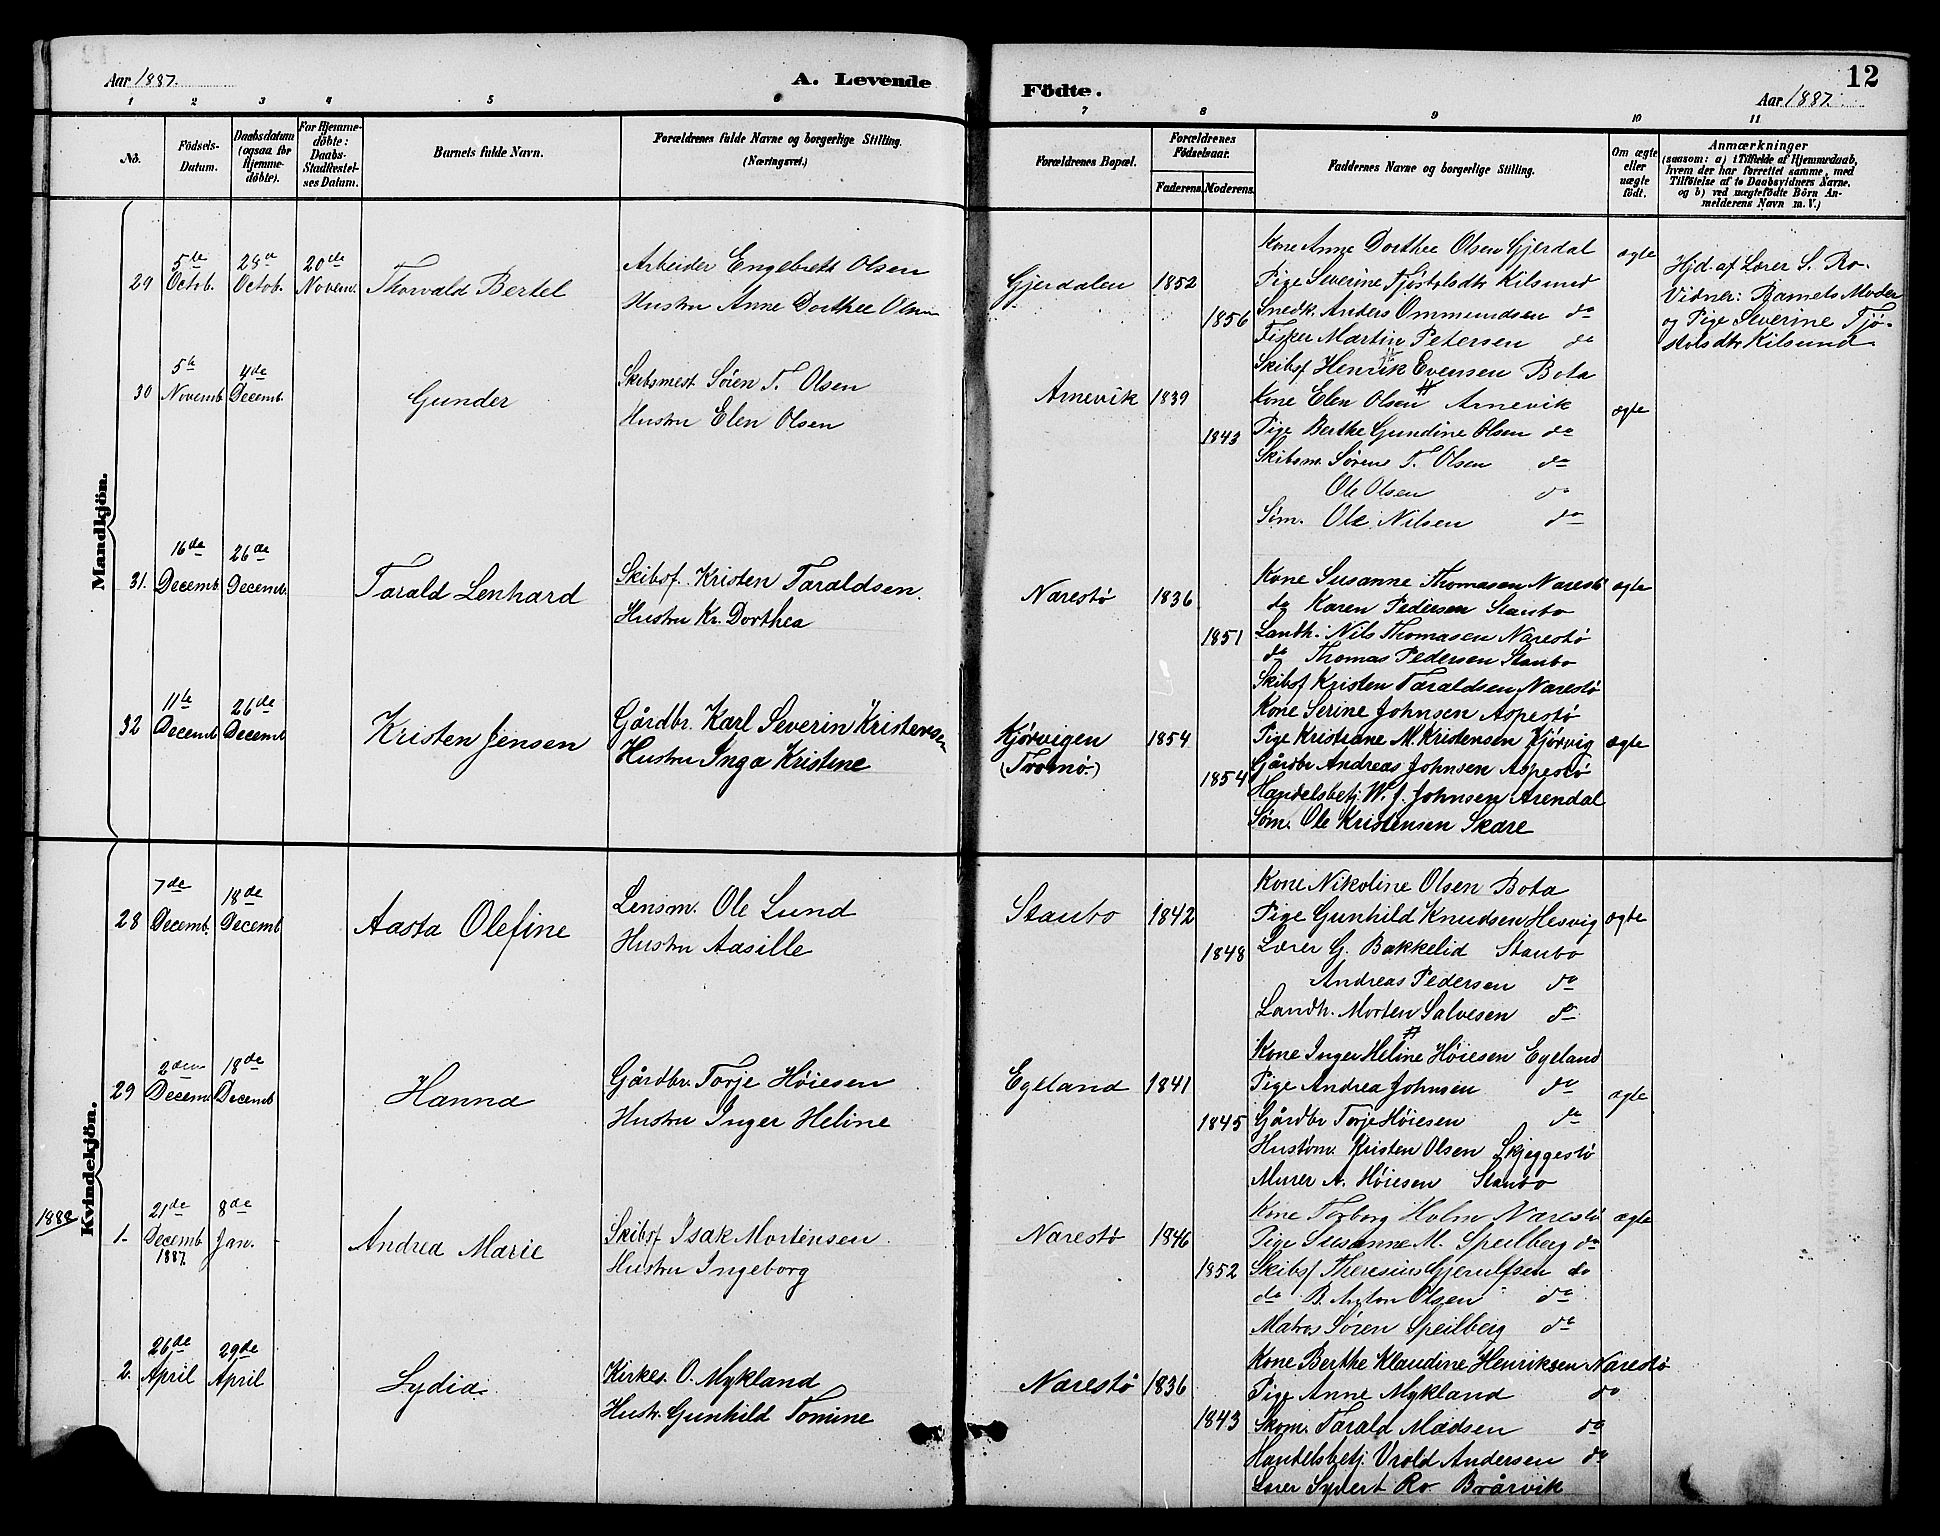 Aar 1887.
A. Levende
Födte.
12
Aar 1887.
1 2 3 4 5 6 7 8 9 10 11
No.
Födsels-
Datum.
Daabsdatum
(ogsaa for
Hjemme-
döbte).
For Hjemme-
döbte:
Daabs-
Stadfæstel-
ses Datum.
Barnets fulde Navn.
Forældrenes fulde Navne og borgerlige Stilling.
(Næringsvei.)
Forældrenes Bopæl.
Forældrenes
Födselsaar.
Faderens. Moderens.
Faddernes Navne og borgerlige Stilling.
Om ægte
eller
uægte
födt.
Anmærkninger
(saasom: a) i Tilfælde af Hjemmedaab,
hvem der har forrettet samme, med
Tilföielse af to Daabsvidners Navne,
og b) ved uægtefödte Börn An-
melderens Navn m. V.)
Mandkjön.
29
5te
Octob.
28de
Octob.
20de
Novemb.
Thorvald Bertel
Arbeider Engebrett Olsen
Hustru Anne Dorthee Olsen
Gjerdalen
1852
1856
Kone Anne Dorthee Olsen Gjerdal
Pige Severine Tjöstolsdtr Kilsund
Snedk. Anders Ommundsen do
Fisker Martin Petersen do
ægte
Hjd. af Lærer S. Ro.
Vidner: Barnets Moder
og Pige Severine Tjö-
stolsdtr Kilsund
30
5te
Novemb.
4de
Decemb.
Gunder
Skibsmest Sören T. Olsen
Hustru Elen Olsen
Arnevik
1839
1843
Skibsf Henrik Evensen Bota
Kone Elen Olsen Arnevik
Pige Berthe Gundine Olsen do
Skibsm. Sören T. Olsen do
Ole Olsen do
Søm. Ole Nilsen do
ægte
31.
16de
Decemb.
26de
Decemb.
Tarald Lenhard
Skibsf. Kristen Taraldsen.
Hustru Kr. Dorthea
Narestø
1836
1851
Kone Susanne Thomasen Narestø
do Karen Pedersen Staubo
Landh. Nils Thomasen Narestø
do Thomas Pedersen Staubo
Skibsf Kristen Taraldsen Narestø
ægte
32
11te
Decemb
26de
Decemb
Kristen Jensen
Gårdbr. Karl Severin Kristensen
Hustru Inga Kristine
Kjørvigen
(Tromø)
1854
1854
Kone Serine Johnsen Aspestø
Pige Kristiane M. Kristensen Kjørvig
Gårdbr Andreas Johnsen Aspestø
Handelsbetj. W. J. Johnsen Arendal
Søm. Ole Kristensen Skare
ægte
Kvindekjön.
28
7de
Decemb.
18de
Decemb
Aasta Olefine
Lensm. Ole Lund
Hustru Aasille
Staubo
1842
1848
Kone Nikoline Olsen Bota
Pige Gunhild Knudsen Hesvig
Lærer G. Bakkelid Staubo
Andreas Pedersen do
Landh. Morten Salvesen do
ægte
29
2den
Decemb
18de
Decemb
Hanna
Gårdbr. Torje Høiesen
Hustru Inger Heline
Egeland
1841
1845
Kone Inger Heline Høiesen Egeland
Pige Andrea Johnsen do
Gårdbr Torje Høiesen do
Hustøm. Kristen Olsen Skjeggestø
Murer A. Høiesen Staubo
ægte
1888
1.
21de
Decemb
1887.
8de
Jan.
Andrea Marie
Skibsf Isak Mortensen.
Hustru Ingeborg
Narestø
1846
1852
Kone Torborg Holm Narestø
Pige Susanne M. Speilberg do
Skibsf Theresius Gjerulfsen do
do B. Anton Olsen do
Matros Søren Speilberg do
ægte
2.
26de
April
29de
April
Lydia
Kirkes. O. Mykland
Hustr. Gunhild Tomine
Narestø
1836
1843
Kone Berthe Klaudine Henriksen Narestø
Pige Anne Mykland do
Skom. Tarald Madsen do
Handelsbetj. Vrold Andersen do
Lærer Syvert Ro Brårvik